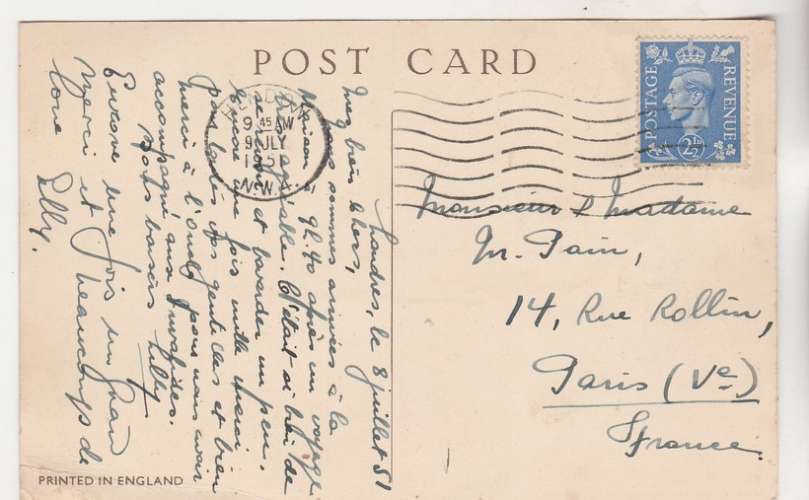 POST CARD
POSTAGE
REVENUE
2½
9 45 AM
9 JLY
1951
N.W.
Londres, le 8 juillet 51
Mes biens chers,
Nous sommes arrivés à la
Maison à 9h.40 après un voyage
très agréable. C'était si bien de
se revoir et bavarder un peu.
Encore une fois mille merci
pour toutes vos gentilles et bien
merci à l'oncle pour nous avoir
accompagné aux Invalides.
Bons baisers Lilly
Encore une fois un grand
Merci et beaucoup de
love Lilly.
Monsieur & Madame
M. Pain,
14, Rue Rollin,
Paris (Ve)
France.
PRINTED IN ENGLAND